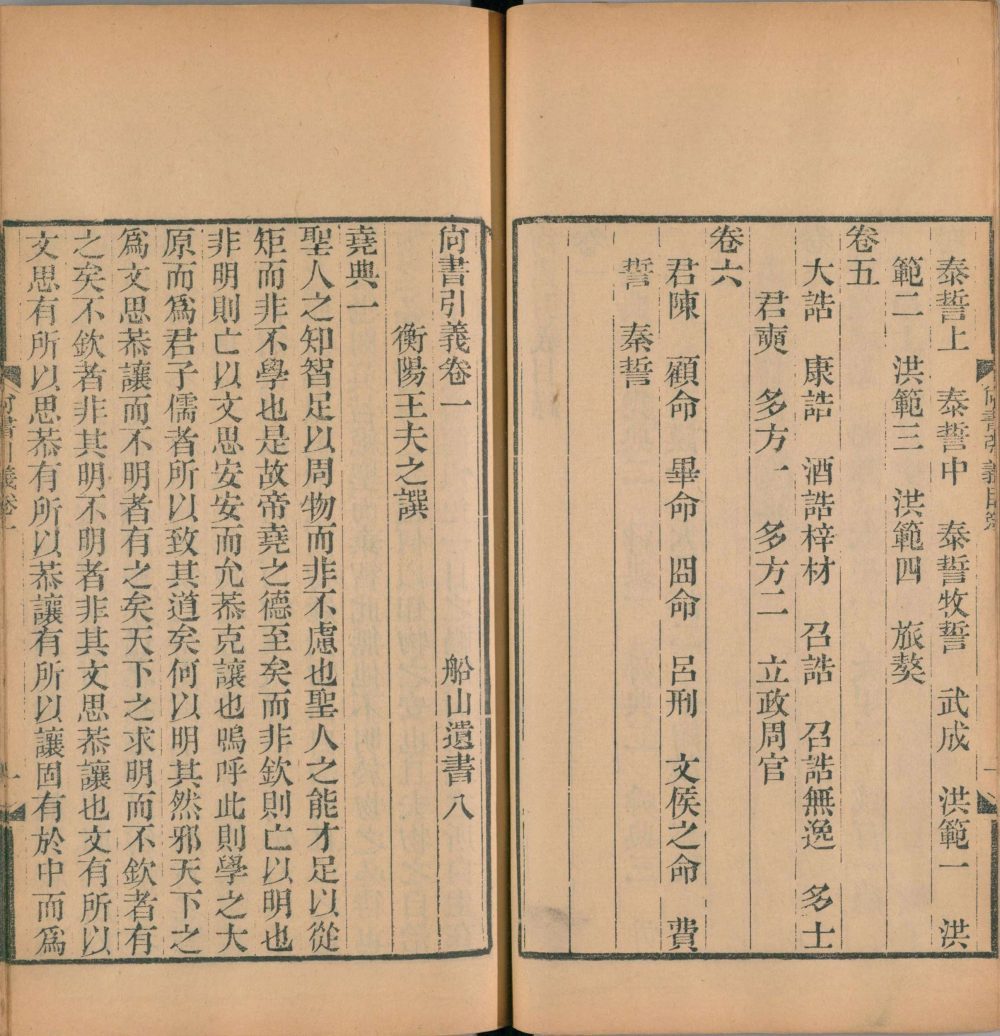 泰誓上　泰誓中　泰誓牧誓　武成　洪範一　洪
範二　洪範三　洪範四　旅獒
卷五
大誥　康誥　酒誥梓材　召誥　召誥無逸　多士
君奭　多方一　多方二　立政周官
卷六
君陳　顧命　畢命　冏命　呂刑　文侯之命　費
誓　秦誓
尚書引義卷一　船山遺書八
衡陽王夫之譔
堯典一
聖人之知智足以周物而非不慮也聖人之能才足以從
矩而非不學也是故帝堯之德至矣而非欽則亡以明也
非明則亡以文思安安而允恭克讓也嗚呼此則學之大
原而爲君子儒者所以致其道矣何以明其然邪天下之
爲文思恭讓而不明者有之矣天下之求明而不欽者有
之矣不欽者非其明不明者非其文思恭讓也文有所以
文思有所以思恭有所以恭讓有所以讓固有於中而爲
尚書引義卷一
一